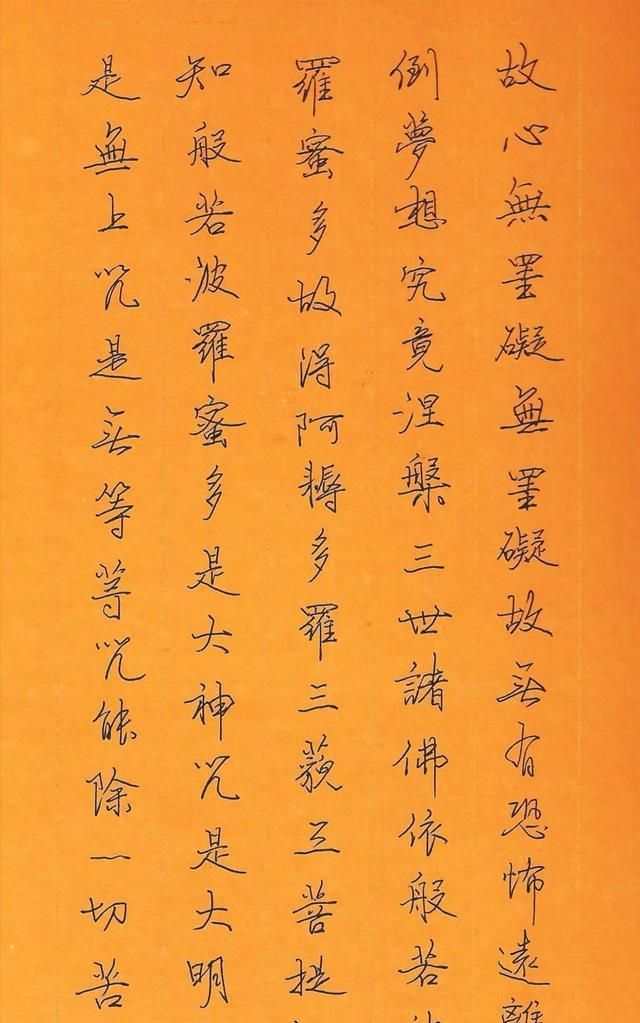 故心無罣礙無罣礙故無有恐怖遠離
倒夢想究竟涅槃三世諸佛依般若
羅蜜多故得阿耨多羅三藐三菩提
知般若波羅蜜多是大神咒是大明
是無上咒是無等等咒能除一切苦